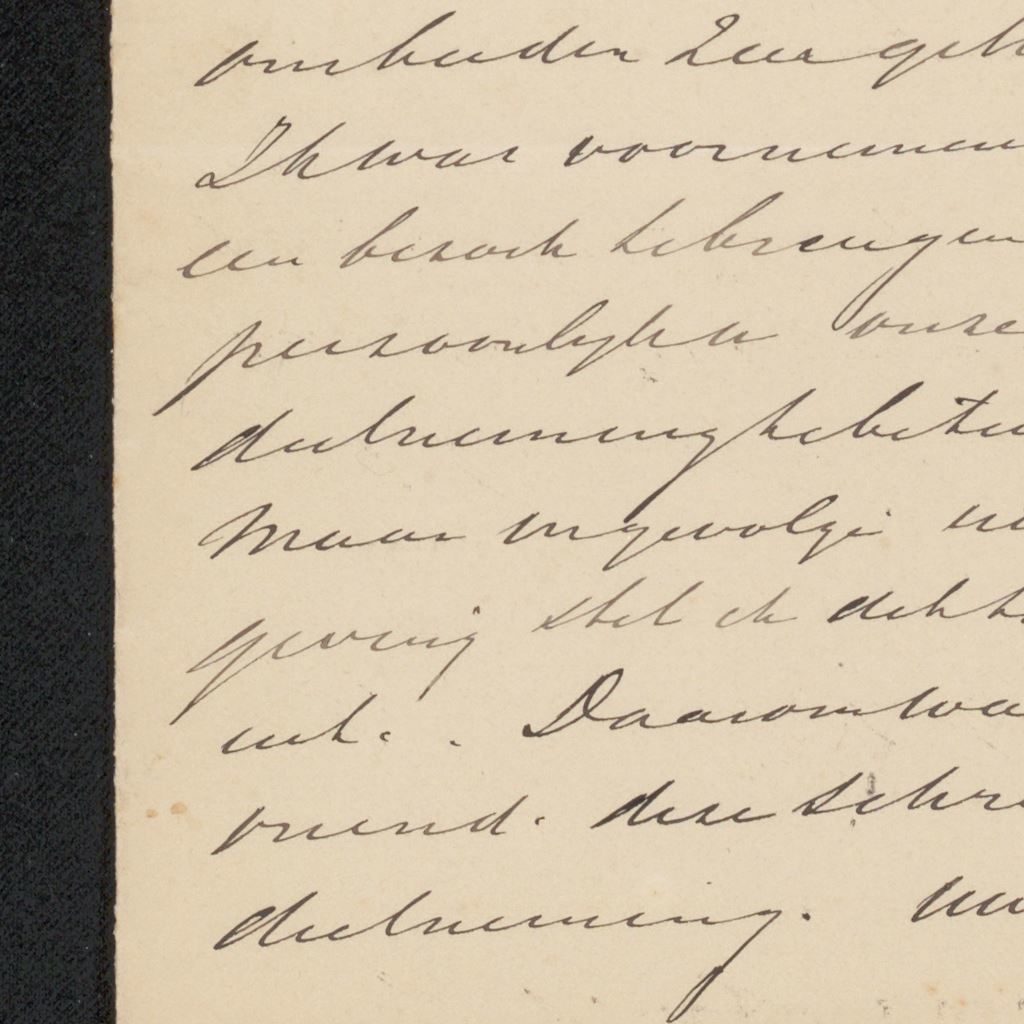 ombeiden zeer get
Ik was voornemen
een bezoek te brengen
persoonlyke onze
deelneming te betu
Maar ingevolge uw
geving stel ik dit t
uit. . Daarom wa
vriend. deze schr
deelneming. uw